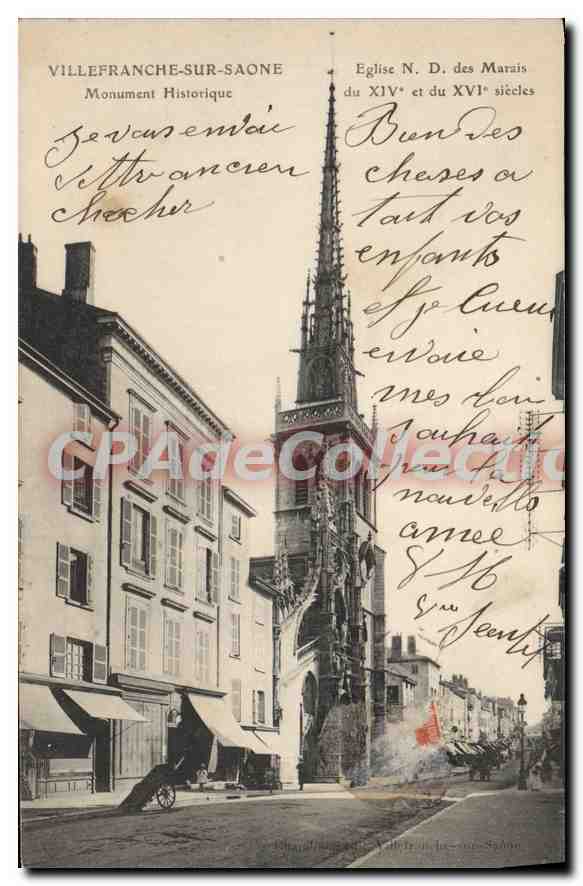 VILLEFRANCHE-SUR-SAONE
Monument Historique
Eglise N. D. des Marais
du XIVᵉ et du XVIᵉ siècles
je vous envoi
vottr ancien
chocher
Bien des
choses a
tout vos
enfants
et je leur
envoie
mes bon
souhait
pour la
nouvelle
amee
CPACollection
Villefranche-sur-Saône